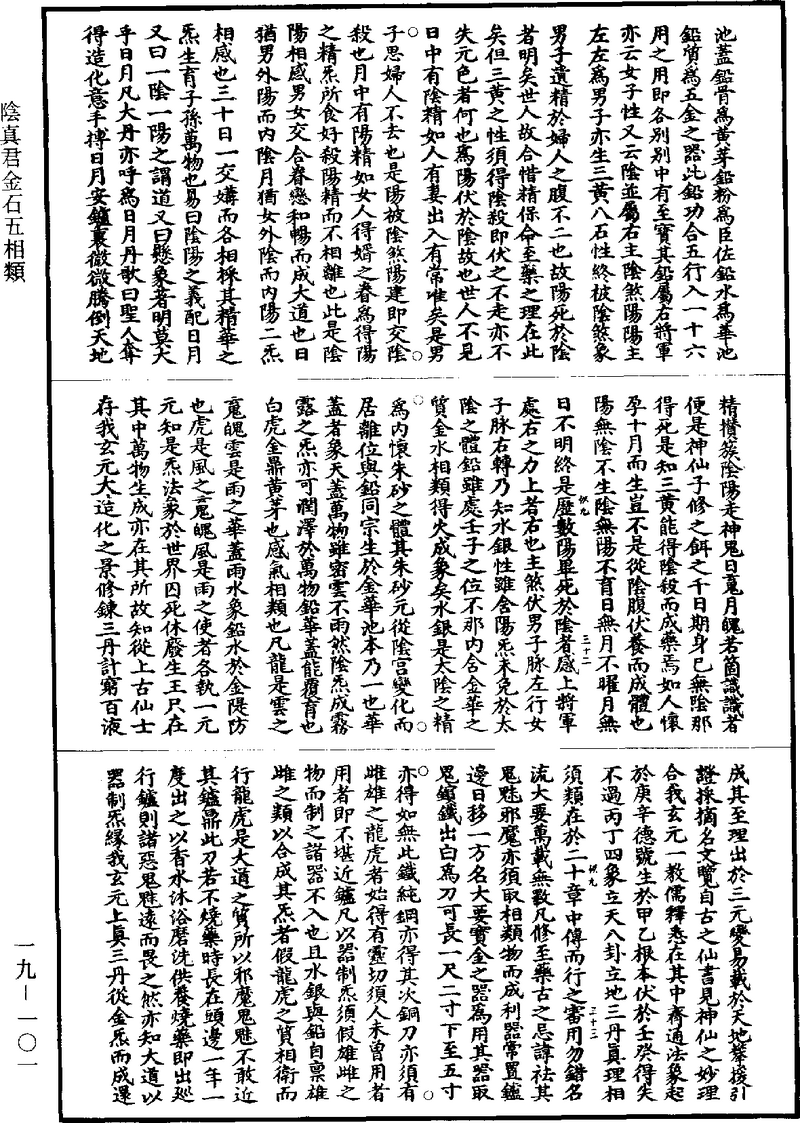 陰真君金石五相類
一九－一〇一
池蓋鉛骨為黃芽鉛粉為臣佐鉛水為華池
鉛質為五金之器此鉛功合五行入一十六
用之用即各別別中有至寶其鉛屬右將軍
亦云女子性又云陰並屬右主陰煞陽陽主
左左為男子亦生三黃八石性終被陰煞象
男子遺精於婦人之腹不二也故陽死於陰
者明矣世人故合惜精保命至藥之理在此
矣但三黃之性須得陰殺即伏之不走亦不
失元色者何也為陽伏於陰故也世人不見
日中有陰精如人有妻出入有常唯矣是男
子思婦人不去也是陽被陰煞陽建即交陰
殺也月中有陽精如女人得婿之眷為得陽
之精炁所食好殺陽精而不相離也此是陰
陽相感男女交合眷戀和暢而成大道也日
猶男外陽而內陰月猶女外陰而內陽二炁
相感也三十日一交媾而各相採其精華之
炁生育子孫萬物也易曰陰陽之義配日月
又曰一陰一陽之謂道又曰懸象著明莫大
乎日月凡大丹亦呼為日月丹歌曰聖人奪
得造化意手搏日月安鑪裏微微騰倒天地
精攢簇陰陽走神鬼日䰟月魄若箇識識者
便是神仙子修之餌之千日期身已無陰那
得死是知三黃能得陰殺而成藥焉如人懷
孕十月而生豈不是從陰腹伏養而成體也
陽無陰不生陰無陽不育日無月不曜月無
日不明終是歷數陽單死於陰者感上將軍
處右之力上若右也主煞伏男子脉左行女
子脉右轉乃知水銀性雖含陽炁未免於太
陰之體鉛雖處壬子之位不那內合金華之
質金水相類得火成象矣水銀是太陰之精
為內懷朱砂之體其朱砂元從陰宮變化而
居離位與鉛同宗生於金華池本乃一也華
蓋者象天蓋萬物雖密雲不雨然陰炁成霧
露之炁亦可潤澤於萬物鉛華蓋能覆育也
白虎金鼎黃芽也感氣相類也凡龍是雲之
䰟魄雲是雨之華蓋雨水象鉛水於金隄防
也虎是風之䰟魄風是雨之使者各執一元
元知是炁法象於世界囚死休廢生王只在
其中萬物生成亦在其所故知從上古仙士
存我玄元大造化之景修鍊三丹計窮百液
成其至理出於三元變易載於天地攀援引
證採摘名文覽自古之仙書見神仙之妙理
合我玄元一教儒釋悉在其中齊通法象起
於庚辛德號生於甲乙根本伏於壬癸得失
不過丙丁四象立天八卦立地三丹真理相
須類在於二十章中傳而行之審用勿錯名
流大要萬載無斁凡修至藥古之忌諱祛其
鬼魅邪魔亦須取相類物而成利器常置鑪
邊日移一方名大要寶金之器為用其器取
鬼鑌鐵出白為刀可長一尺二寸下至五寸
亦得如無此鐵純鋼亦得其次銅刀亦須有
雌雄之龍虎者始得有靈切須人未曾用者
用者即不堪近鑪凡以器制炁須假雄雌之
物而制之諸器不入也且水銀與鉛自稟雄
雌之類以合成其炁者假龍虎之質相衛而
行龍虎是大道之質所以邪魔鬼魅不敢近
其鑪鼎此刀若不燒藥時長在頭邊一年一
度出之以香水沐浴磨洗供養燒藥即出巡
行鑪則諸惡鬼魅遠而畏之然亦知大道以
器制炁緣我玄元上真三丹從金炁而成還